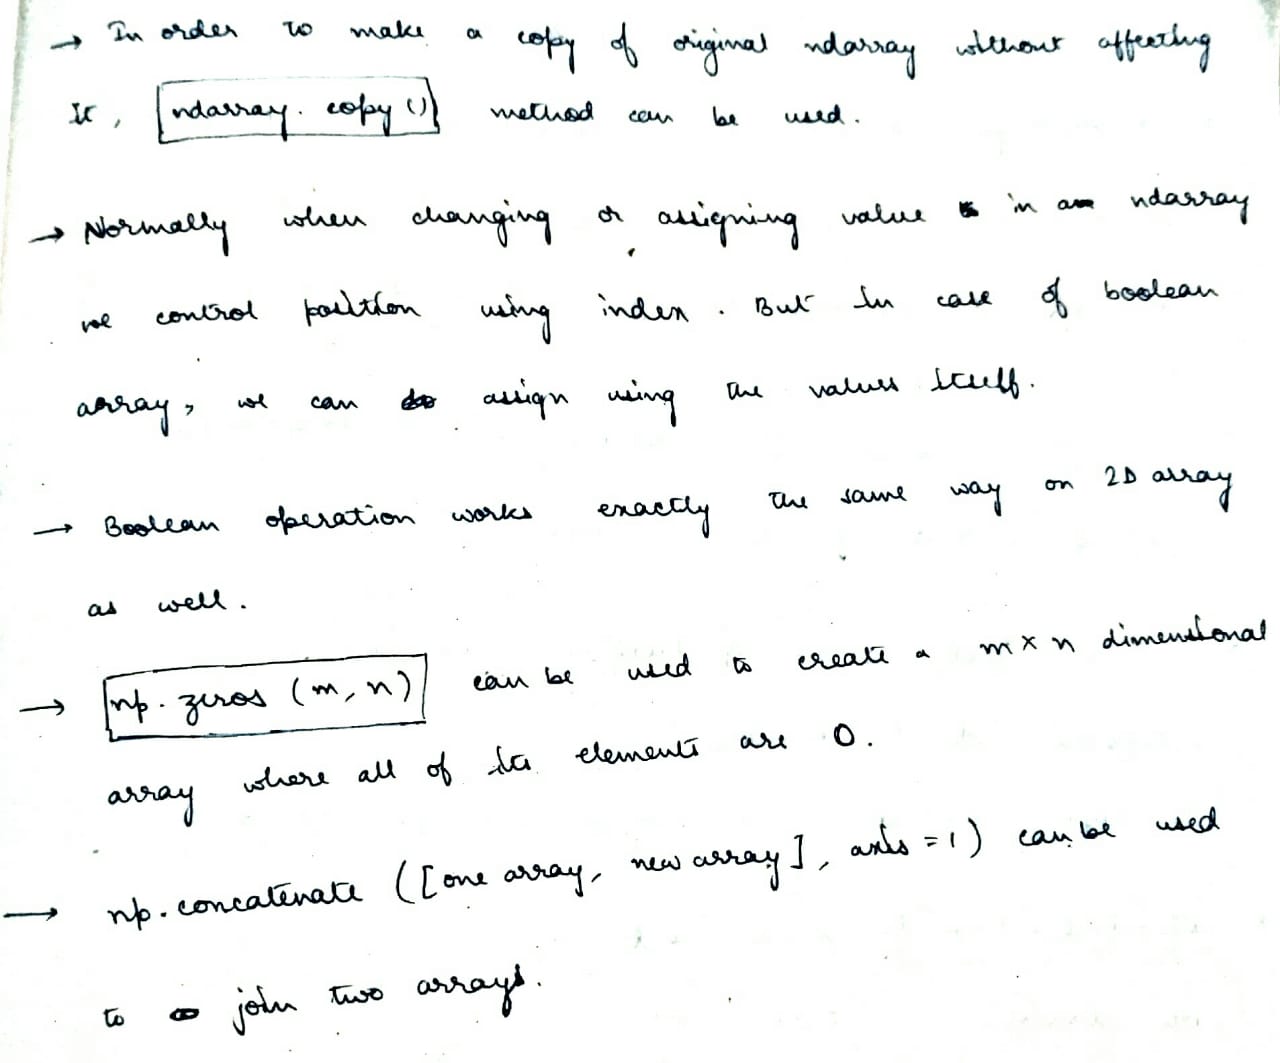 → In order to make a copy of original ndarray without affecting
it, ndarray.copy() method can be used.
→ Normally when changing or assigning value in an ndarray
we control position using index. But in case of boolean
array, we can assign using the values itself.
→ Boolean operation works exactly the same way on 2D array
as well.
→ np.zeros (m, n) can be used to create a m x n dimensional
array where all of its elements are 0.
→ np.concatenate ([one array, new array], axis = 1) can be used
to join two arrays.